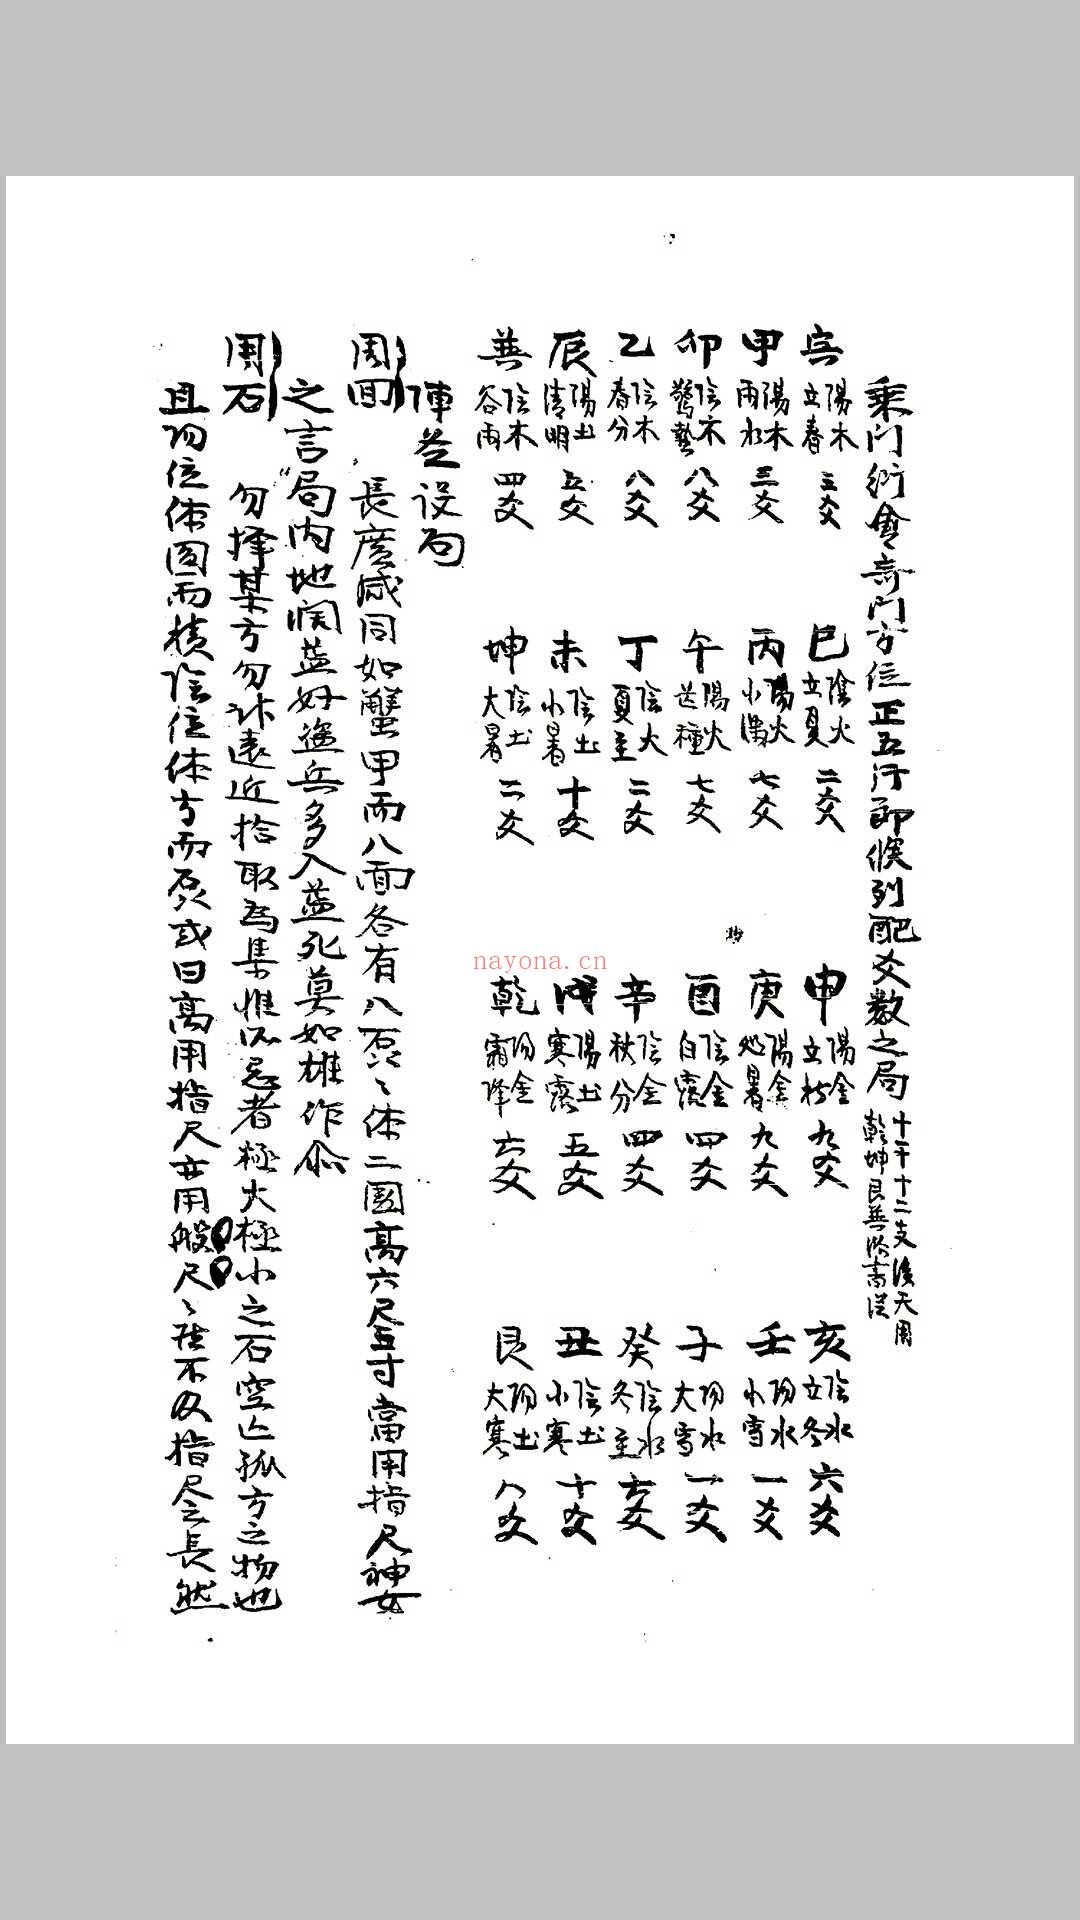 乘门衍會奇门方位正五行節候列配爻数之局 十干十二支後天用 乾坤艮巽
寅 陽木 立春 三爻
甲 陽木 雨水 三爻
卯 陰木 驚蟄 八爻
乙 陰木 春分 八爻
辰 陽土 清明 五爻
巽 陰木 谷雨 四爻
巳 陰火 立夏 二爻
丙 陽火 小滿 七爻
午 陽火 芒種 七爻
丁 陰火 夏至 二爻
未 陰土 小暑 十爻
坤 陰土 大暑 二爻
申 陽金 立秋 九爻
庚 陽金 処暑 九爻
酉 陰金 白露 四爻
辛 陰金 秋分 四爻
戌 陽土 寒露 五爻
乾 阳金 霜降 六爻
亥 陰水 立冬 六爻
壬 阳水 小雪 一爻
子 阳水 大雪 一爻
癸 陰水 冬至 六爻
丑 陰土 小寒 十爻
艮 阳土 大寒 八爻
陣 设局
周囬 長廣咸同如蟹甲而八面各有八磊〻体二圆高六尺五寸當用指尺神女
之言局内地濶益好盗兵多入益死莫如雄作
用石 勿擇某方勿計遠近拾取為集惟所忌者極大極小之石空亡孤方之物也
且阳位体圆而積陰位体方而磊或曰高用指尺 用般尺〻 不及指尺 長然
nayona.cn